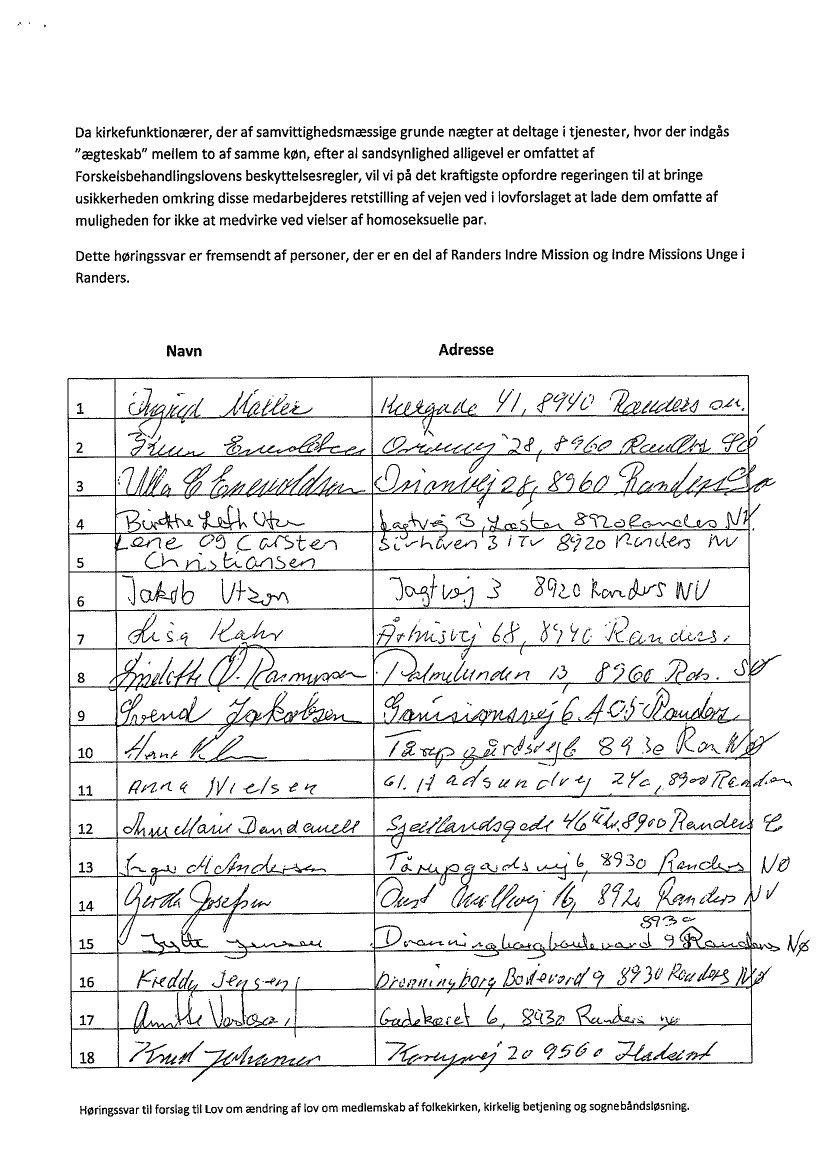 Da kirkefunktionærer, der af samvittighedsmæssige grunde nægter at deltage i tjenester, hvor der indgås
”ægteskab” mellem to af samme køn, efter al sandsynlighed alligevel er omfattet af
Forskelsbehandlingslovens beskyttelsesregler, vil vi på det kraftigste opfordre regeringen til at bringe
usikkerheden omkring disse medarbejderes retstilling af vejen ved i lovforslaget at lade dem omfatte af
muligheden for ikke at medvirke ved vielser af homoseksuelle par.
Dette høringssvar er fremsendt af personer, der er en del af Randers Indre Mission og Indre Missions Unge i
Randers.
Navn Adresse
1 Ingrid Møller 41, 8940 Randers
2 Enevoldsen Orionvej 28, 8960 Randers SØ
3 Ulla E Enevoldsen Orionvej 28, 8960 Randers SØ
4 Birthe Leth Utzon Jagtvej 3, 8920 Randers NV
Lene og Carsten 3 1TV 8920 Randers NV
5 Christiansen
6 Jakob Utzon Jagtvej 3 8920 Randers NV
7 Lisa Kahr 68, 8940 Randers.
8 Liselotte Rasmussen Palmelunden 13, 8960 Rds. SØ
9 Svend Jakobsen Randers
10 Tårupgårdsvej 6 8930 Ran NØ
11 Anna Nielsen Gl. Hadsundvej 24c, 8900 Randers
12 Anne Marie Dandanell Sjællandsgade 46 8900 Randers C
13 Inger M Andersen Tårupgårdsvej 6, 8930 Randers NØ
14 Gerda Josefsen Oust Møllevej 16, 8920 Randers NV
8930
15 Jytte Jensen Dronningborgboulevard 9 Randers NØ
16 Freddy Jensen Dronningborg Boulevard 9 8930 Randers NØ
17 Gadekæret 6, 8930 Randers NØ
18 Knud Johansen 20 9560 Hadsund
Høringssvar til forslag til Lov om ændring af lov om medlemskab af folkekirken, kirkelig betjening og sognebåndsløsning.